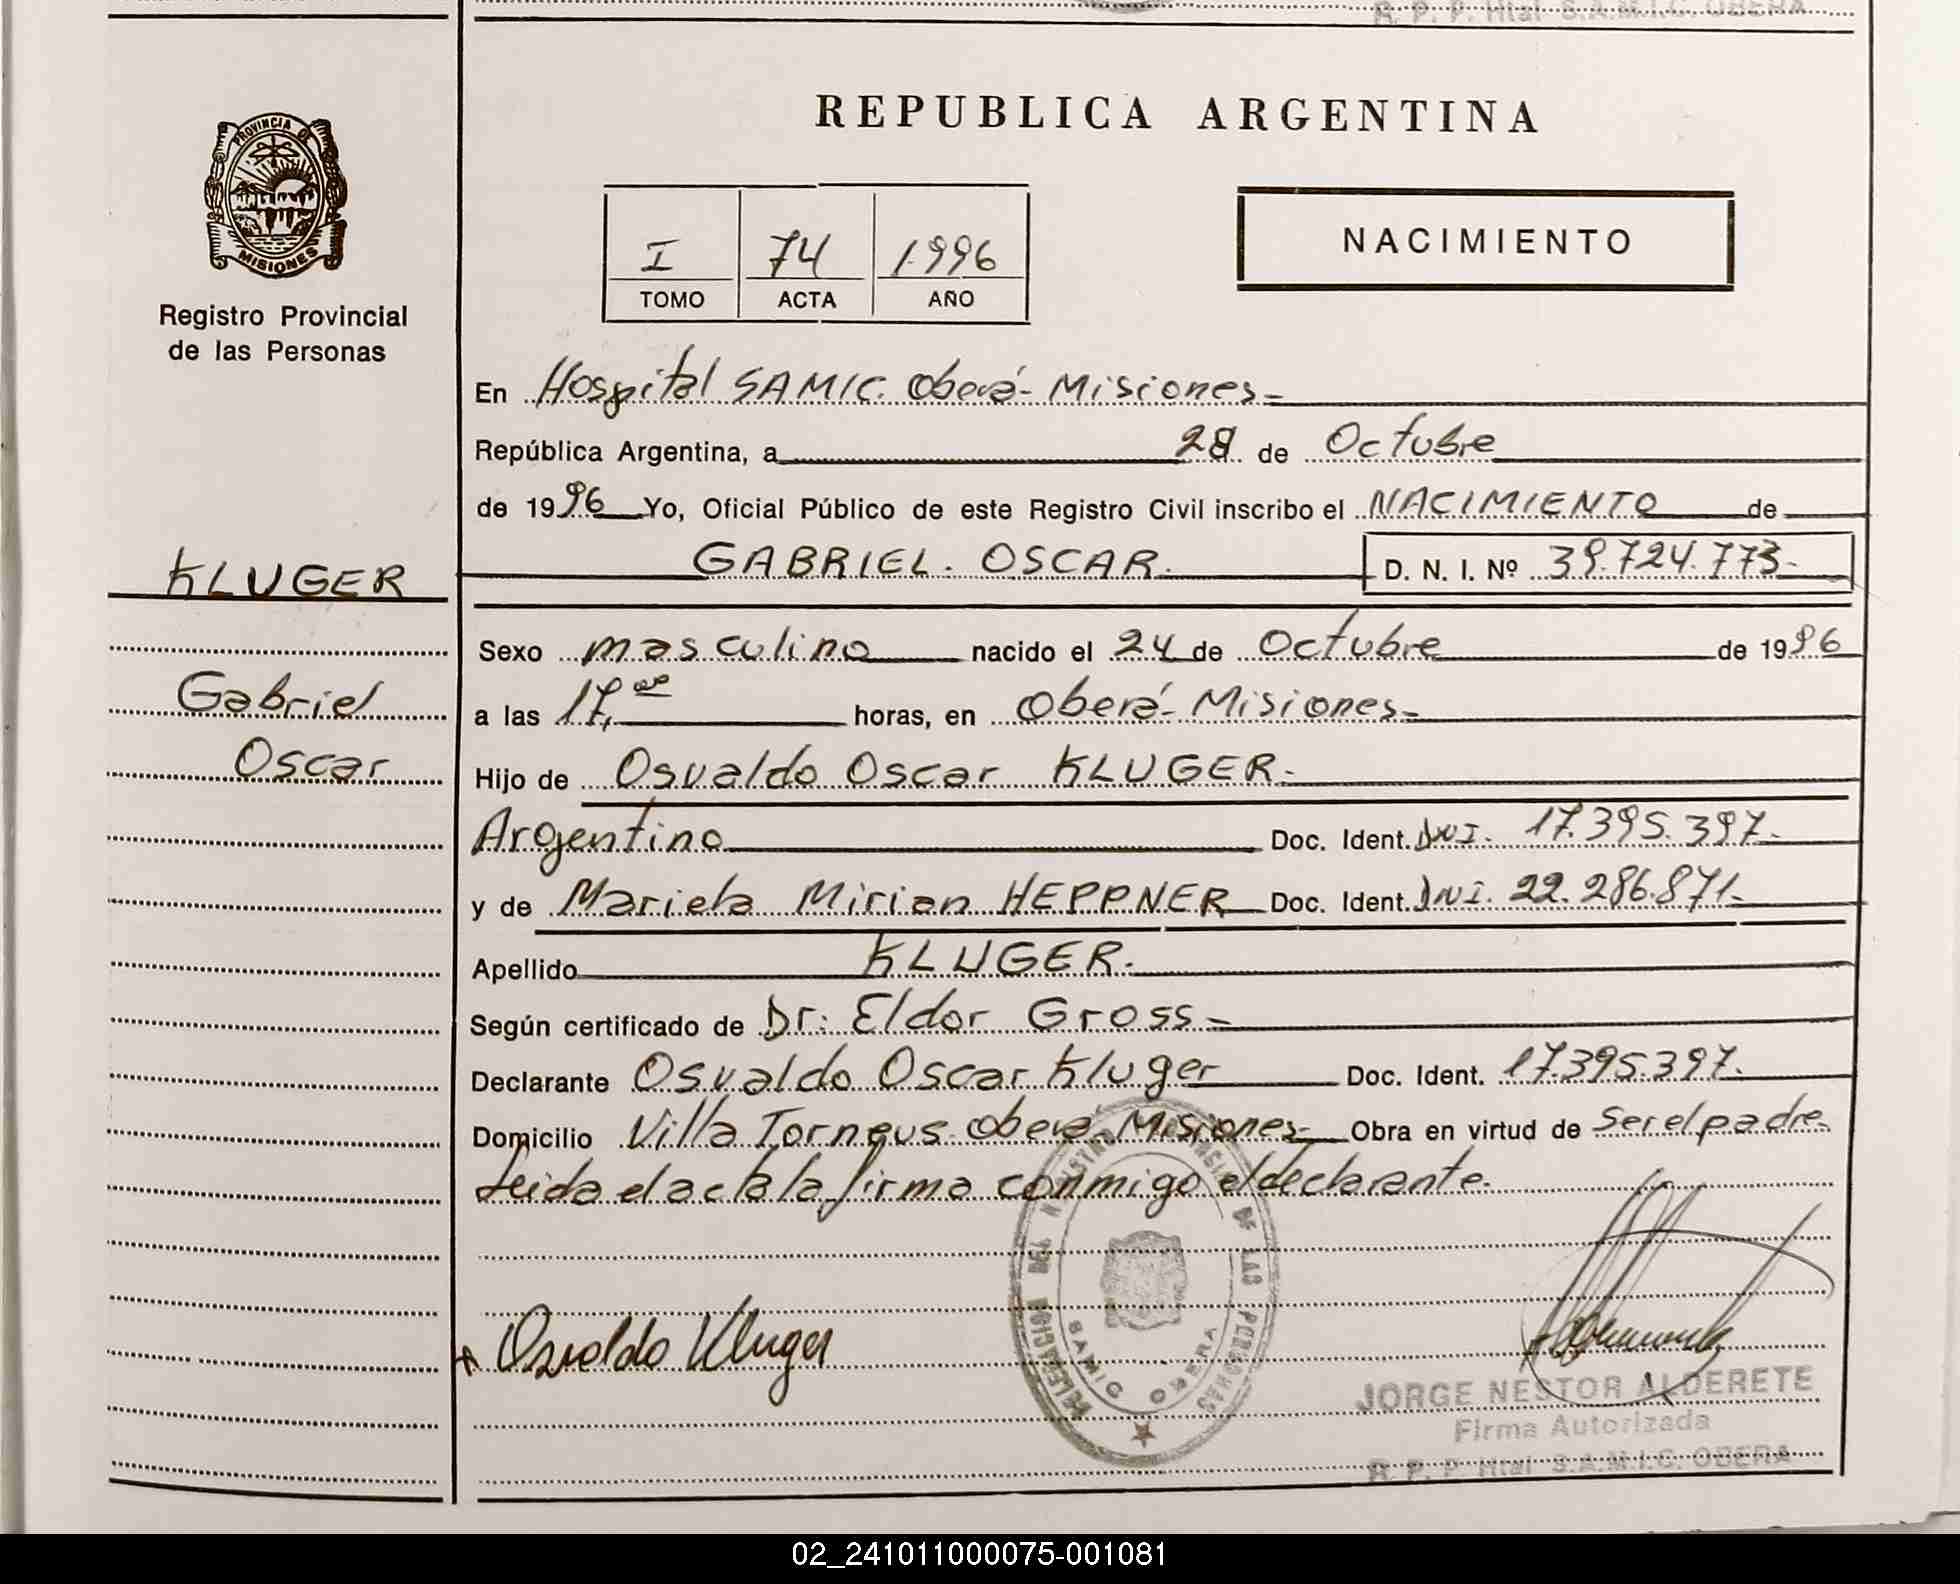 R. P. P. Htal S.A.M.I.C. OBERA
PROVINCIA DE
MISIONES
Registro Provincial
de las Personas
REPUBLICA ARGENTINA
I 74 1996
TOMO ACTA AÑO
NACIMIENTO
En Hospital SAMIC. Oberá- Misiones-
República Argentina, a 28 de Octubre
de 1996 Yo, Oficial Público de este Registro Civil inscribo el NACIMIENTO de
KLUGER
GABRIEL. OSCAR. D. N. I. Nº 39.724.773-
Sexo masculino nacido el 24 de Octubre de 1996
Gabriel
a las 17,00 horas, en Oberá- Misiones-
Oscar
Hijo de Osvaldo Oscar KLUGER-
Argentino Doc. Ident. DNI. 17.395.397-
y de Mariela Mirian HEPPNER Doc. Ident. DNI. 22.286.871-
Apellido KLUGER.
Según certificado de Dr. Eldor Gross-
Declarante Osvaldo Oscar Kluger Doc. Ident. 17.395.397.
Domicilio Villa Torneus- Oberá- Misiones- Obra en virtud de Ser el padre-
Leida el acta la firma conmigo el declarante.
DELEGACION DEL REGISTRO PROVINCIAL DE LAS PERSONAS
SAMIC OBERA
Osvaldo Kluger
JORGE NESTOR ALDERETE
Firma Autorizada
R. P. P. Htal S.A.M.I.C. OBERA
02_241011000075-001081